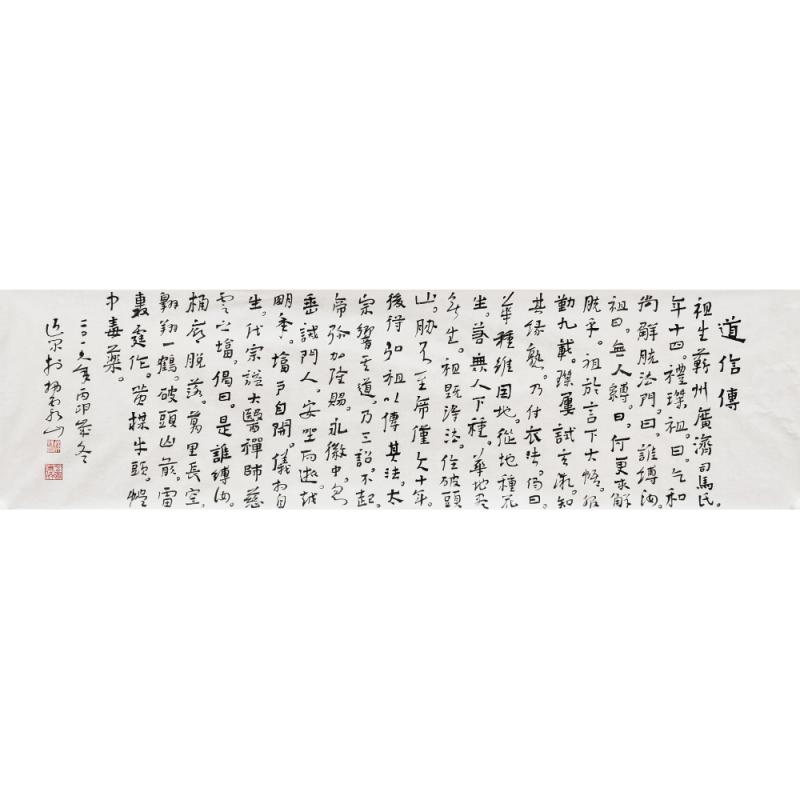 道信傳
祖生蘄州廣濟司馬氏。
年十四。禮璨祖曰。乞和
尚解脫法門。曰。誰縛汝。
祖曰。無人縛。曰。何更求解
脫乎。祖於言下大悟。服
勤九載。璨屢試玄微。知
其緣熟。乃付衣法。偈曰。
華種雖因地。從地種花
生。若無人下種。華地盡
無生。祖既得法。住破頭
山。脅不至席僅六十年。
後得弘祖以傳其法。太
宗嚮其道。乃三詔。不起。
帝彌加隆賜。永徽中。忽
垂誡門人。安坐而逝。越
明年。塔戶自開。儀相如
生。代宗諡大醫禪師慈
雲之塔。偈曰。是誰縛汝。
桶底脫落。萬里長空。
翱翔一鶴。破頭山巔。雷
轟霆作。牛頭。
中毒藥。
二〇一九年 歲冬